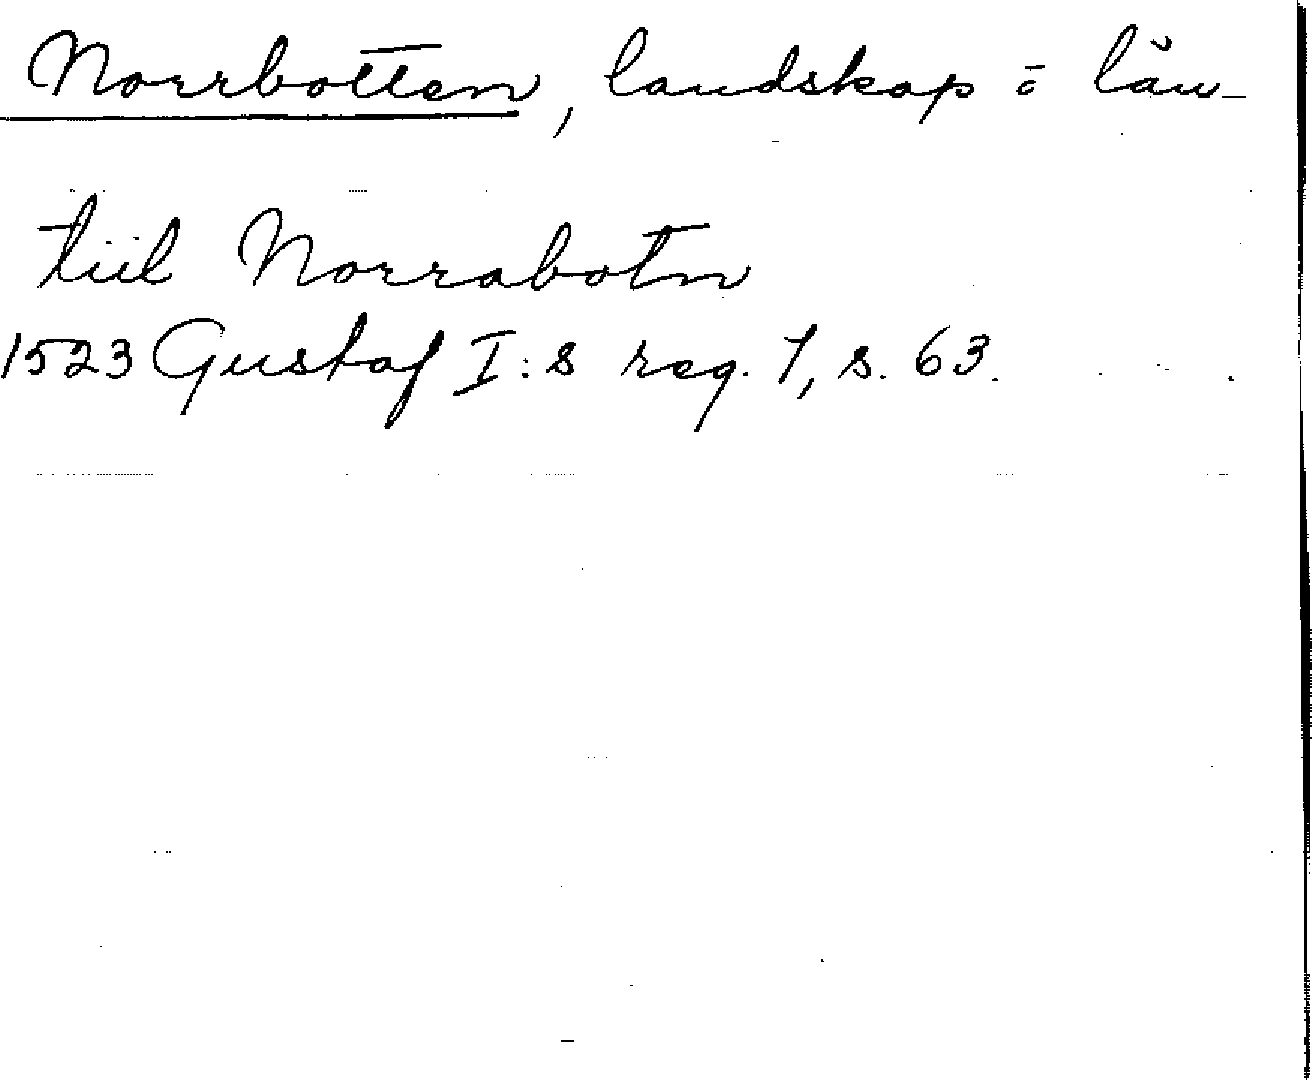 Norrbotten, landskap o län
tiil Norrabotn
1523 Gustaf I:s reg. 1, s. 63.